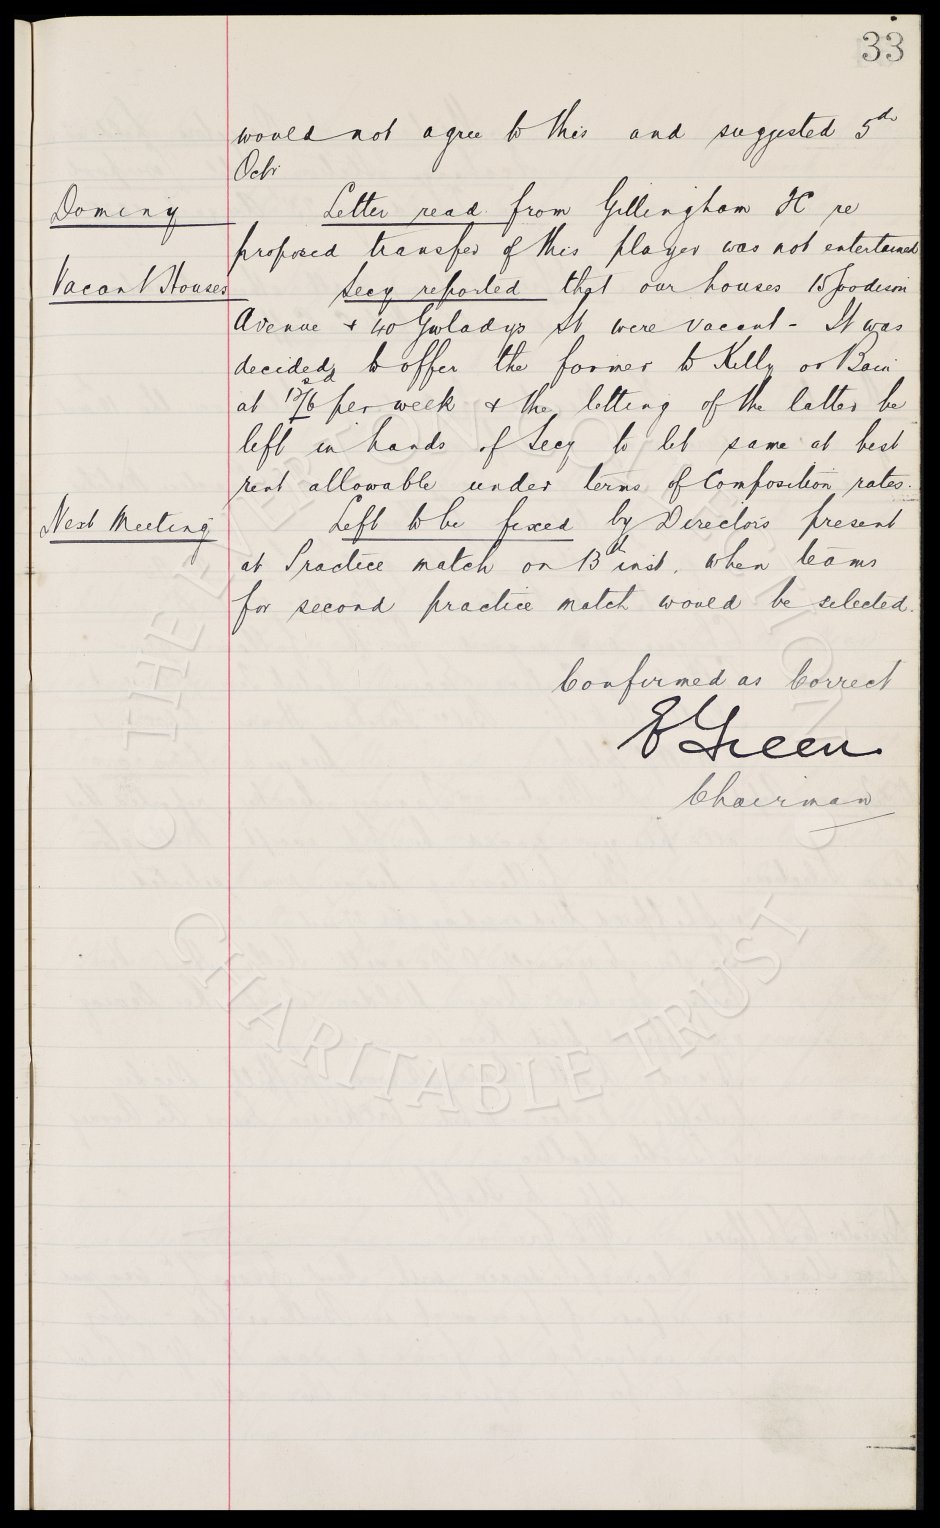 33
would not agree to this and suggested 5th
Octr
Dominy Letter read from Gillingham FC re
proposed transfer of this player was not entertained
Vacant Houses Secy reported that our houses 15 Goodison
Avenue & 40 Gwladys St were vacant - It was
decided to offer the former to Kelly or Bain
at 12s/6d per week & the letting of the latter be
left in hands of Secy to let same at best
rent allowable under terms of Composition rates.
Next Meeting Left to be fixed by Directors present
at Practice match on 13th inst, when teams
for second practice match would be selected.
Confirmed as Correct
E Green
Chairman
THE EVERTON COLLECTION
CHARITABLE TRUST